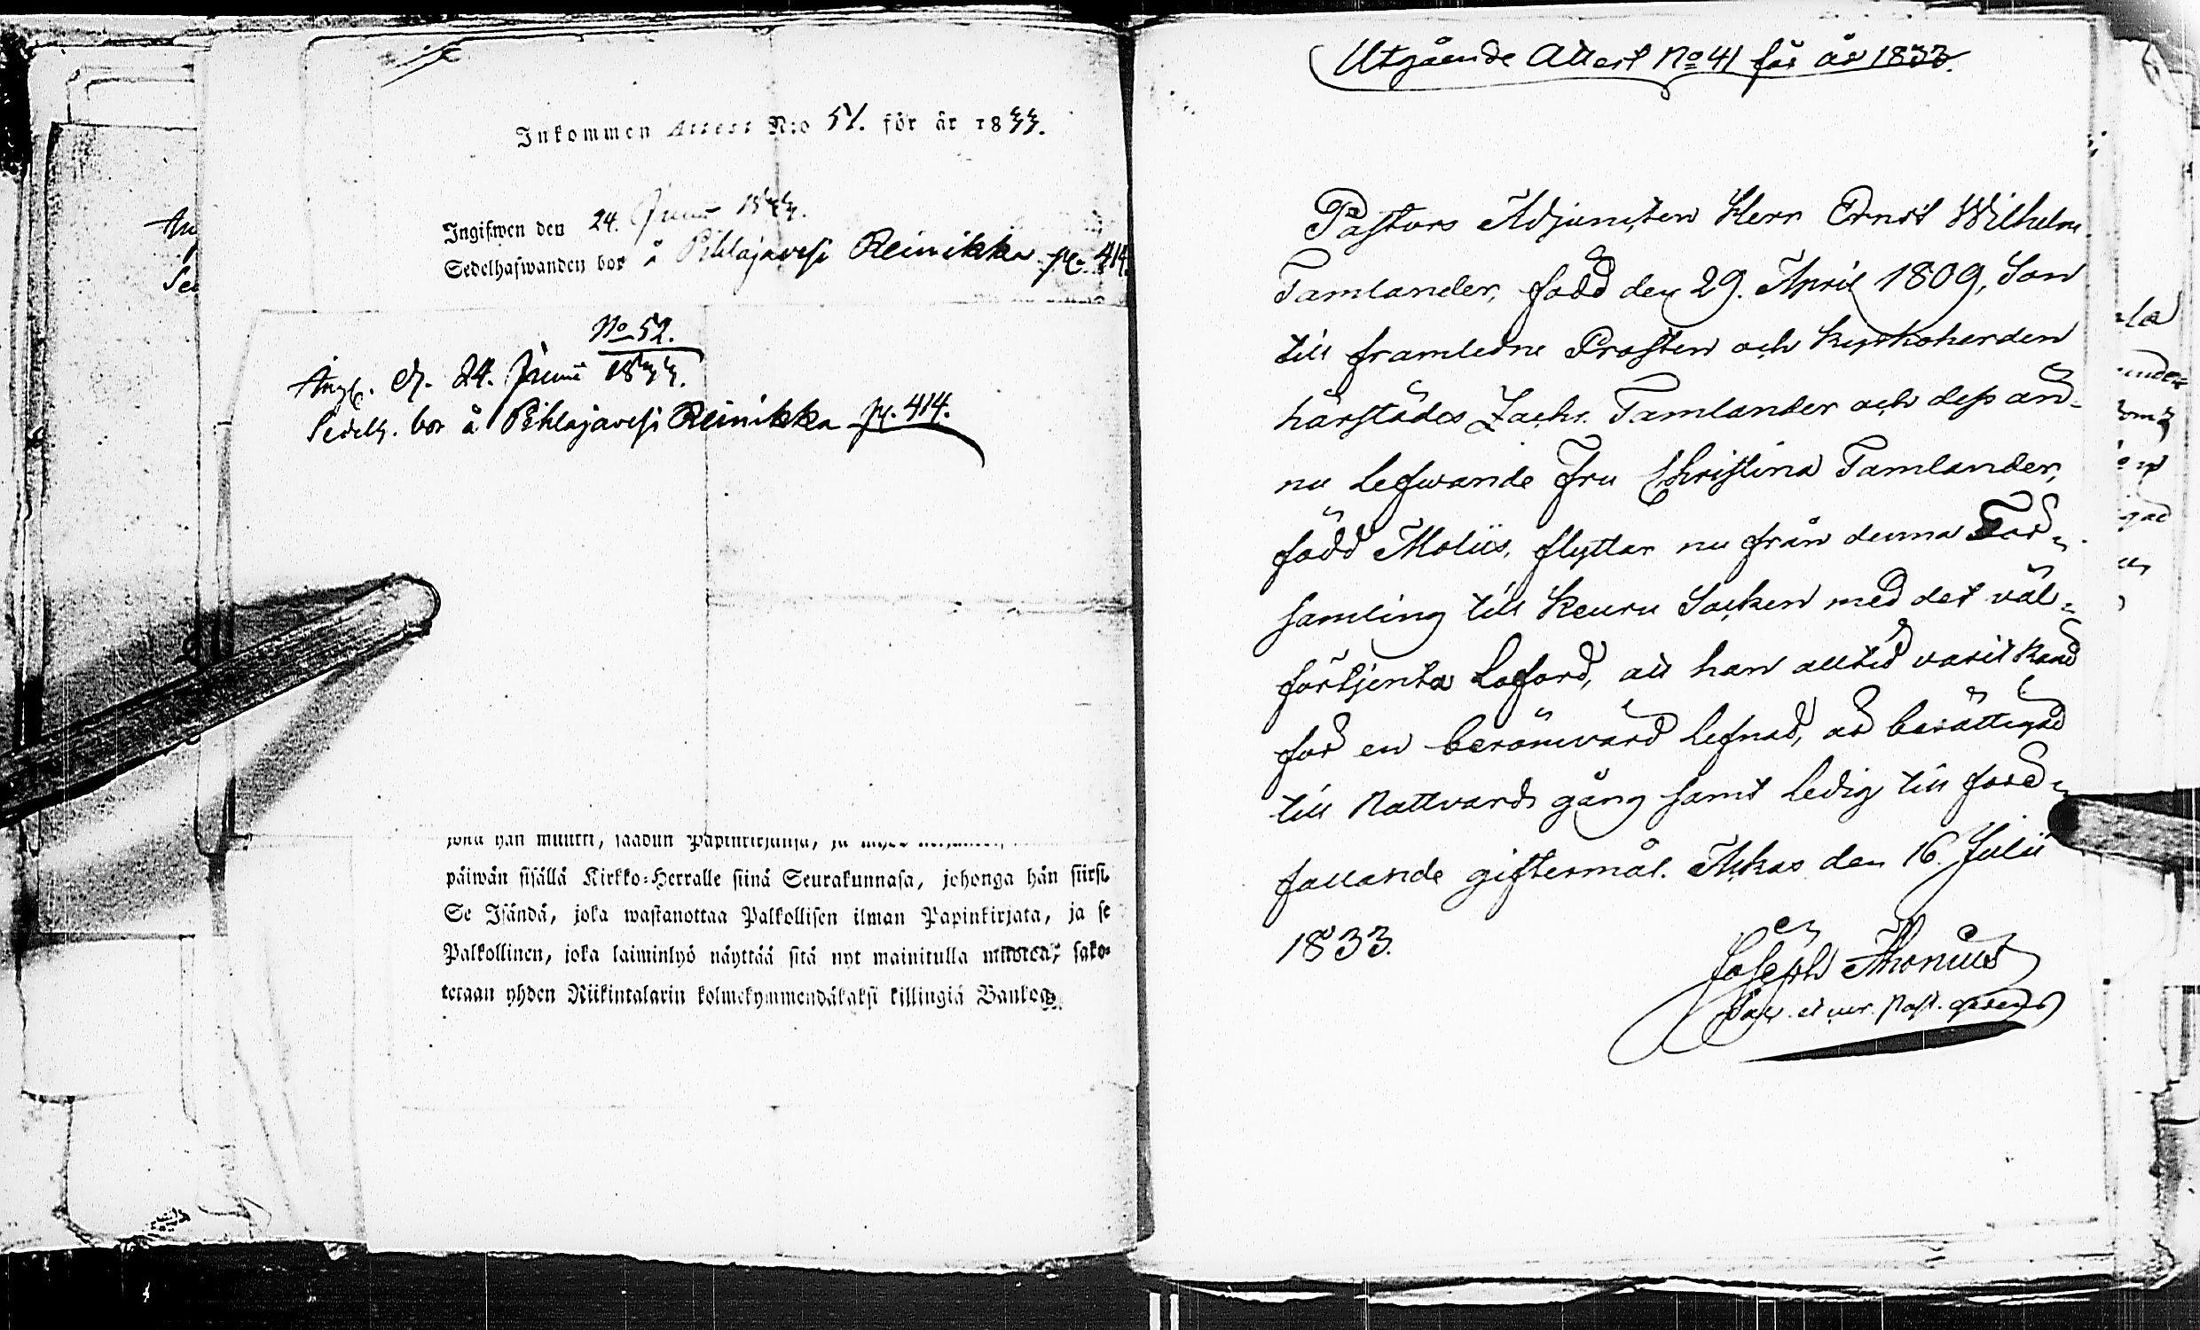 Inkommen Attest N:o 51. för år 1833.
Ingifwen den 24. Junii 1833.
Sedelhafwanden bor å Pihlajavesi Reinikka pg. 414.
No 52.
1833.
Angl. d. 24. Junii
Sedelh. bor å Pihlajavesi Reinikka pg. 414.
päiwän sisällä Kirkko-Herralle siinä Seurakunnasa, johonga hän siirsi.
Se Isändä, joka wastanottaa Palkollisen ilman Papinkirjata, ja se
Palkollinen, joka laiminlyö näyttää sitä nyt mainitulla muotoa, sako-
tetaan yhden Riikintalarin kolmekymmendäkaksi killingiä Bankos.
Utgående Attest No 41 för år 1833.
Pastors Adjuncten Herr Ernst Wilhelm
Tamlander, född den 29. April 1809, Son
till framledne Prosten och Kyrkoherden
härstädes Zachr. Tamlander och dess än-
nu lefwande Fru Christina Tamlander,
född Moliis, flyttar nu från denna För-
samling till Keuru Socken med det väl-
förtjenta Loford, att han alltid varit känd
för en berömvärd lefnad, är berättigad
till Nattvards gång samt ledig till före-
fallande giftermål. Akkas den 16. Julii
1833.
Joseph Thonius